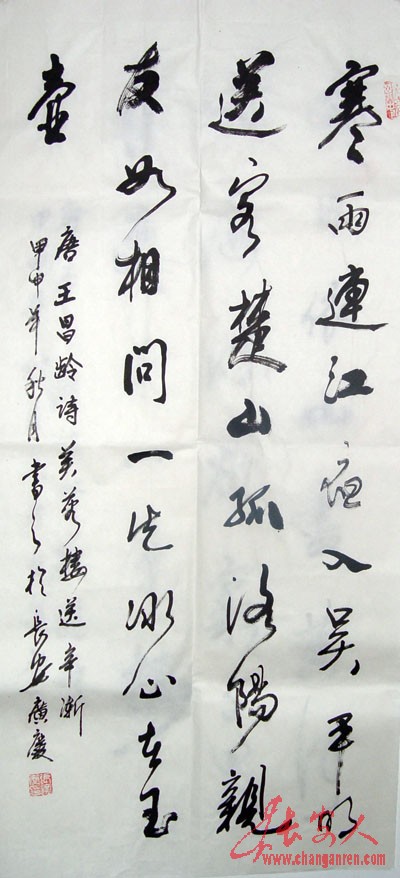 寒雨連江夜入吳平明
送客楚山孤洛陽親
友如相問一片冰心在玉
壺
唐王昌齡詩芙蓉樓送辛漸
甲申年秋月書之於長安廣慶
長安人
www.changanren.com